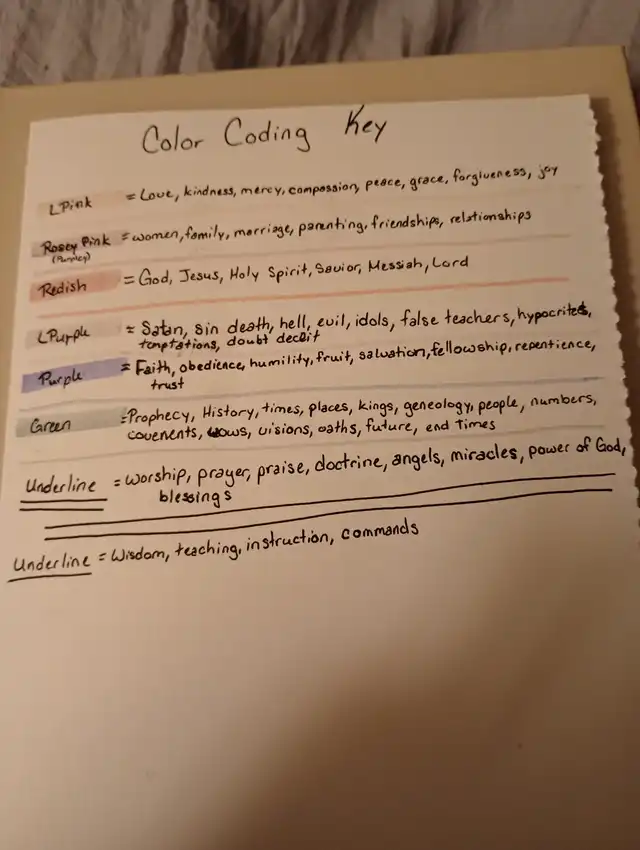 Color Coding Key
L Pink = Love, kindness, mercy, compassion, peace, grace, forgiveness, joy
Rosey Pink = women, family, marriage, parenting, friendships, relationships
(Purpley)
Redish = God, Jesus, Holy Spirit, Savior, Messiah, Lord
L Purple = Satan, sin death, hell, evil, idols, false teachers, hypocrites,
temptations, doubt deciet
Purple = Faith, obedience, humility, fruit, salvation, fellowship, repentience,
trust
Green = Prophecy, History, times, places, kings, geneology, people, numbers,
covenents, vows, visions, oaths, future, end times
Underline = worship, prayer, praise, doctrine, angels, miracles, power of God,
blessings
Underline = Wisdom, teaching, instruction, commands